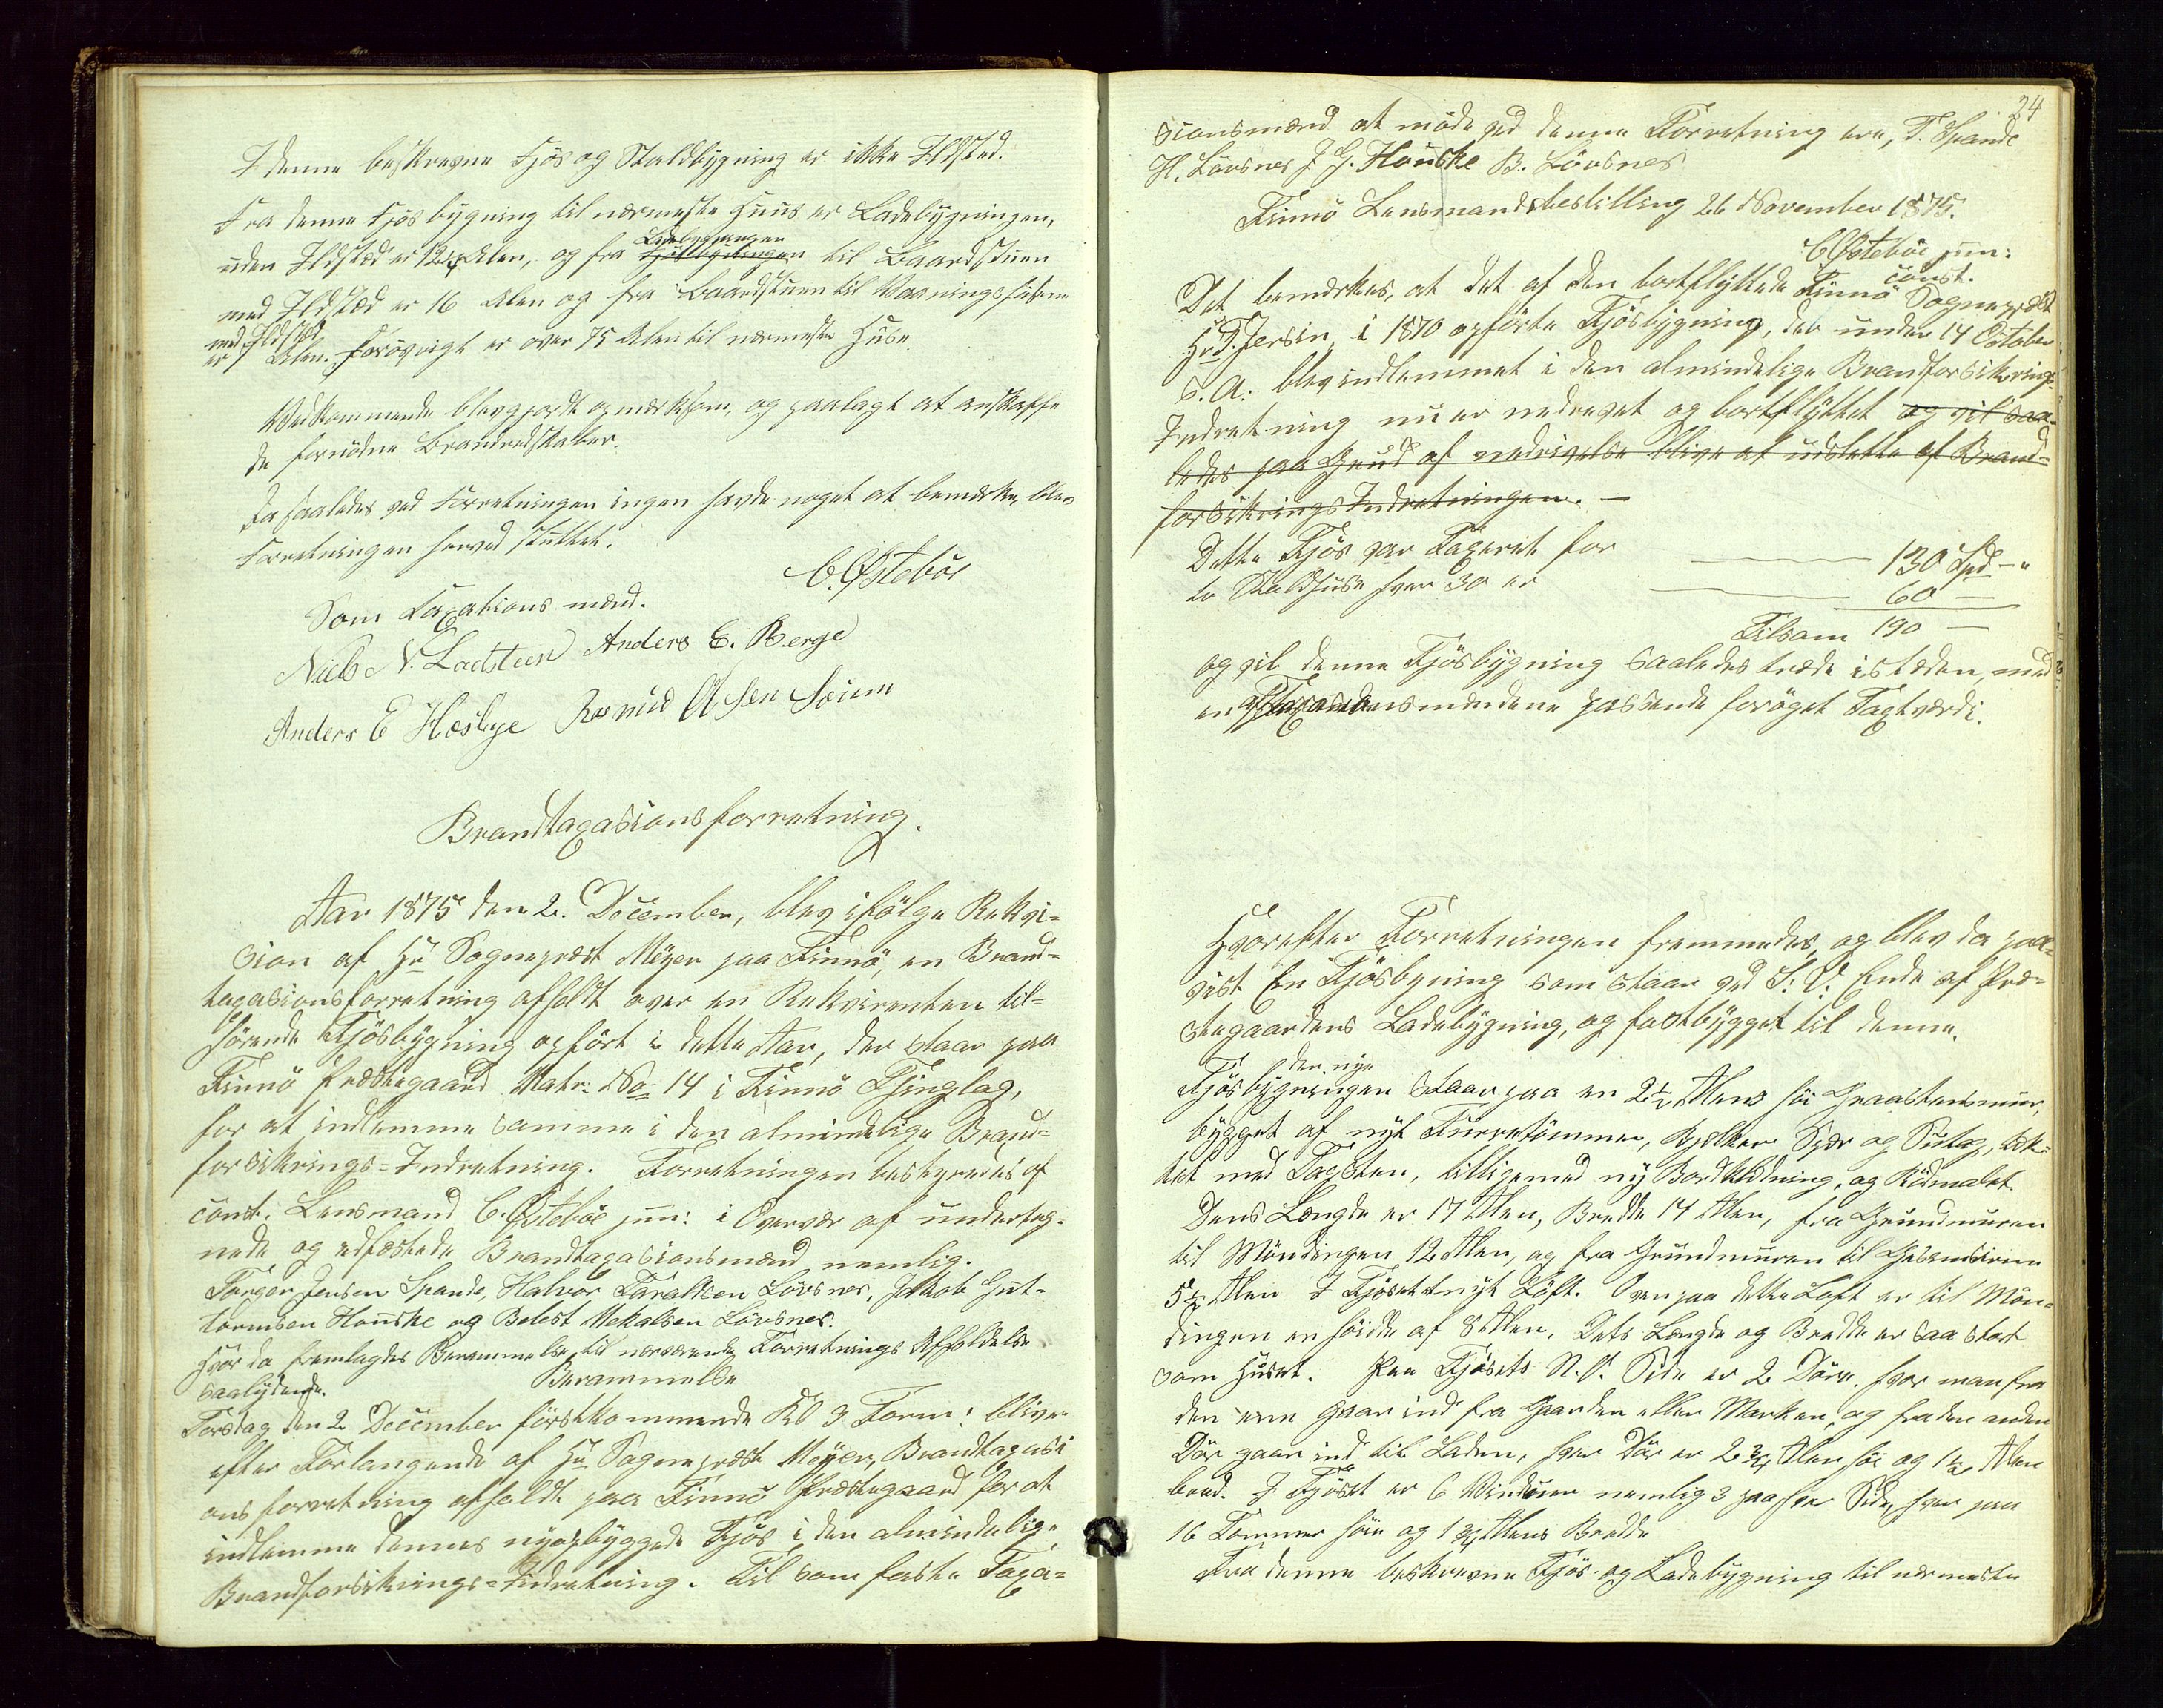 I denne beskrevne Fjøs og Staldbygning er ikke Ildsted.
Fra denne Fjøsbygning til nærmeste Huus er Ladebygningen,
uden Ildsted er 12¼ Alen, og fra Fjøsbygningen Ladebygningen til Baardstuen
med Ildsted er 16 Alen og fra Baardstuen til Vaaningshuset
med Ildsted
er Alen. Forøvrigt er over 75 Alen til nærmeste Huse.
Vedkommende blev gjordt opmærksom, og paalagt at anskaffe
de fornødne Brandredskaber.
Da saaledes ved Forretningen ingen havde noget at bemærke, blev
Forretningen herved sluttet.
C. Østebøe
Som Taxationsmænd.
Niels N. Ladsteen Anders E. Berge
Anders E Hæsbye Rasmus Olsen Soiem
Brandtaxasionsforretning.
Aar 1875 den 2. December, blev ifølge Rekvi-
sion af Hr Sogneprest Meyer paa Finnø, en Brand-
taxasionsforretning afholdt over en Rekvirenten til-
hørende Fjøsbygning opført i dette Aar, der staar paa
Finnø Præstegaard Matr: No 14 i Finnø Thinglag,
for at indlemme samme i den almindelige Brand-
forsikrings-Indretning. Forretningen bestyredes af
const. Lensmand C. Østebøe jun: i Overvær af underteg-
nede og edfæstede Brandtaxasionsmænd nemlig.
Torger Jensen Spande, Halvor Taraldsen Løvsnes, Jakob Gut-
tormsen Houske og Belest Mekalsen Løvsnes.
Hvor da fremlagdes Berammelse til nærværende Forretnings Afholdelse
saalydende.
Berammelse
Torsdag den 2 December førstkommende Kl 9 Form: bliver
efter Forlangende af Hr Sogneprest Meyer, Brandtaxasi
onsforretning afholdt paa Finnø Præstegaard for at
indlemme dennes nyopbyggede Fjøs i den almindelige
Brandforsikrings-Indretning. Til som faste Taxa-
24
sionsmænd at møde ved denne Forretning ere, T. Spande
H. Løvsnes J G. Houske B. Løvsnes
Finnø Lensmandsbestilling 26 November 1875.
C Østebøe jun:
const.
Det bemærkes, at det af den bortflyttede Finnø Sogneprest
Hr Jersin i 1870 opførte Fjøsbygning, der under 14 October
s. A: blev indlemmet i den almindelige Brandforsikrings
Indretning nu er nedrevet og bortflyttet og vil saa-
ledes paa Grund af nedrivelse blive at udslette af Brand-
forsikrings Indretningen. —
Dette Fjøs var Taxerit for 130 Spd - "
to Skaldhuse hver 30 er 60 —
Tilsam 190 —
og vil denne Fjøsbygning saaledes træde istæden, med
en af Taxasionsmændene passende forøget Taxtværdi.
Hvorefter Forretningen fremmedes, og blev da paa-
vist En Fjøsbyning som staar ved S: V: Ende af Præ-
stegaardens Ladebygning, og fastbygget til denne.
den nye
Fjøsbygningen Staar paa en 2½ Alens høi Graastensmur,
bygget af nyt Furretømmer, Bjelker Spær og Sutag, tæk-
ket med Tagsten, tilligemed ny Bordklædning, og Rødmalet.
Dens Længde er 17 Alen, Bredde 14 Alen, fra Grundmuren
til Møndingen 12 Alen, og fra Grundmuren til Gesemsiren
5½ Alen I Fjøset et nyt Loft. Oven paa dette Loft er til Møn-
dingen en høide af 8 Alen, Dets Længde og Bredde er saa stort
som Huset. Paa Fjøsets N. V. Side er 2 Døre, hvor man fra
den ene gaar ind fra Gaarden eller Marken, og fra den anden
Dør gaar ind til Laden, hver Dør er 2¾ Alen høi og 1½ Alen
bred. I Fjøset er 6 Vinduer nemlig 3 paa hver Side, hver paa
16 Tommer høie og 1¾ Alens Bredde
Fra denne beskrevne Fjøs- og Ladebygning til nærmeste